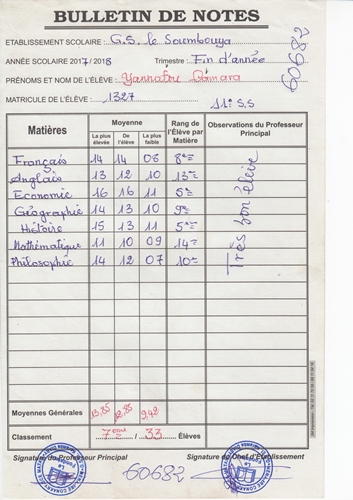 BULLETIN DE NOTES
ETABLISSEMENT SCOLAIRE : G.S. le Soumbouya
ANNÉE SCOLAIRE 2017/2018 Trimestre : Fin d'année
60682
PRÉNOMS ET NOM DE L'ÉLÈVE : Yannafou Camara
MATRICULE DE L'ÉLÈVE : 1327 11e S.S
Matières Moyenne Rang de l'Élève par Matière Observations du Professeur Principal
La plus élevée De l'élève La plus faible
Français 14 14 08 8e
Anglais 13 12 10 13e
Economie 16 16 11 5e
Géographie 14 13 10 9e
Histoire 15 13 11 5e
Mathématique 11 10 09 14e
Philosophie 14 12 07 10e
Très bon élève
Moyennes Générales 13,85 12,85 9,42
Classement 7ème / 33 Élèves
Signature du Professeur Principal Signature du Chef d'Établissement
60682